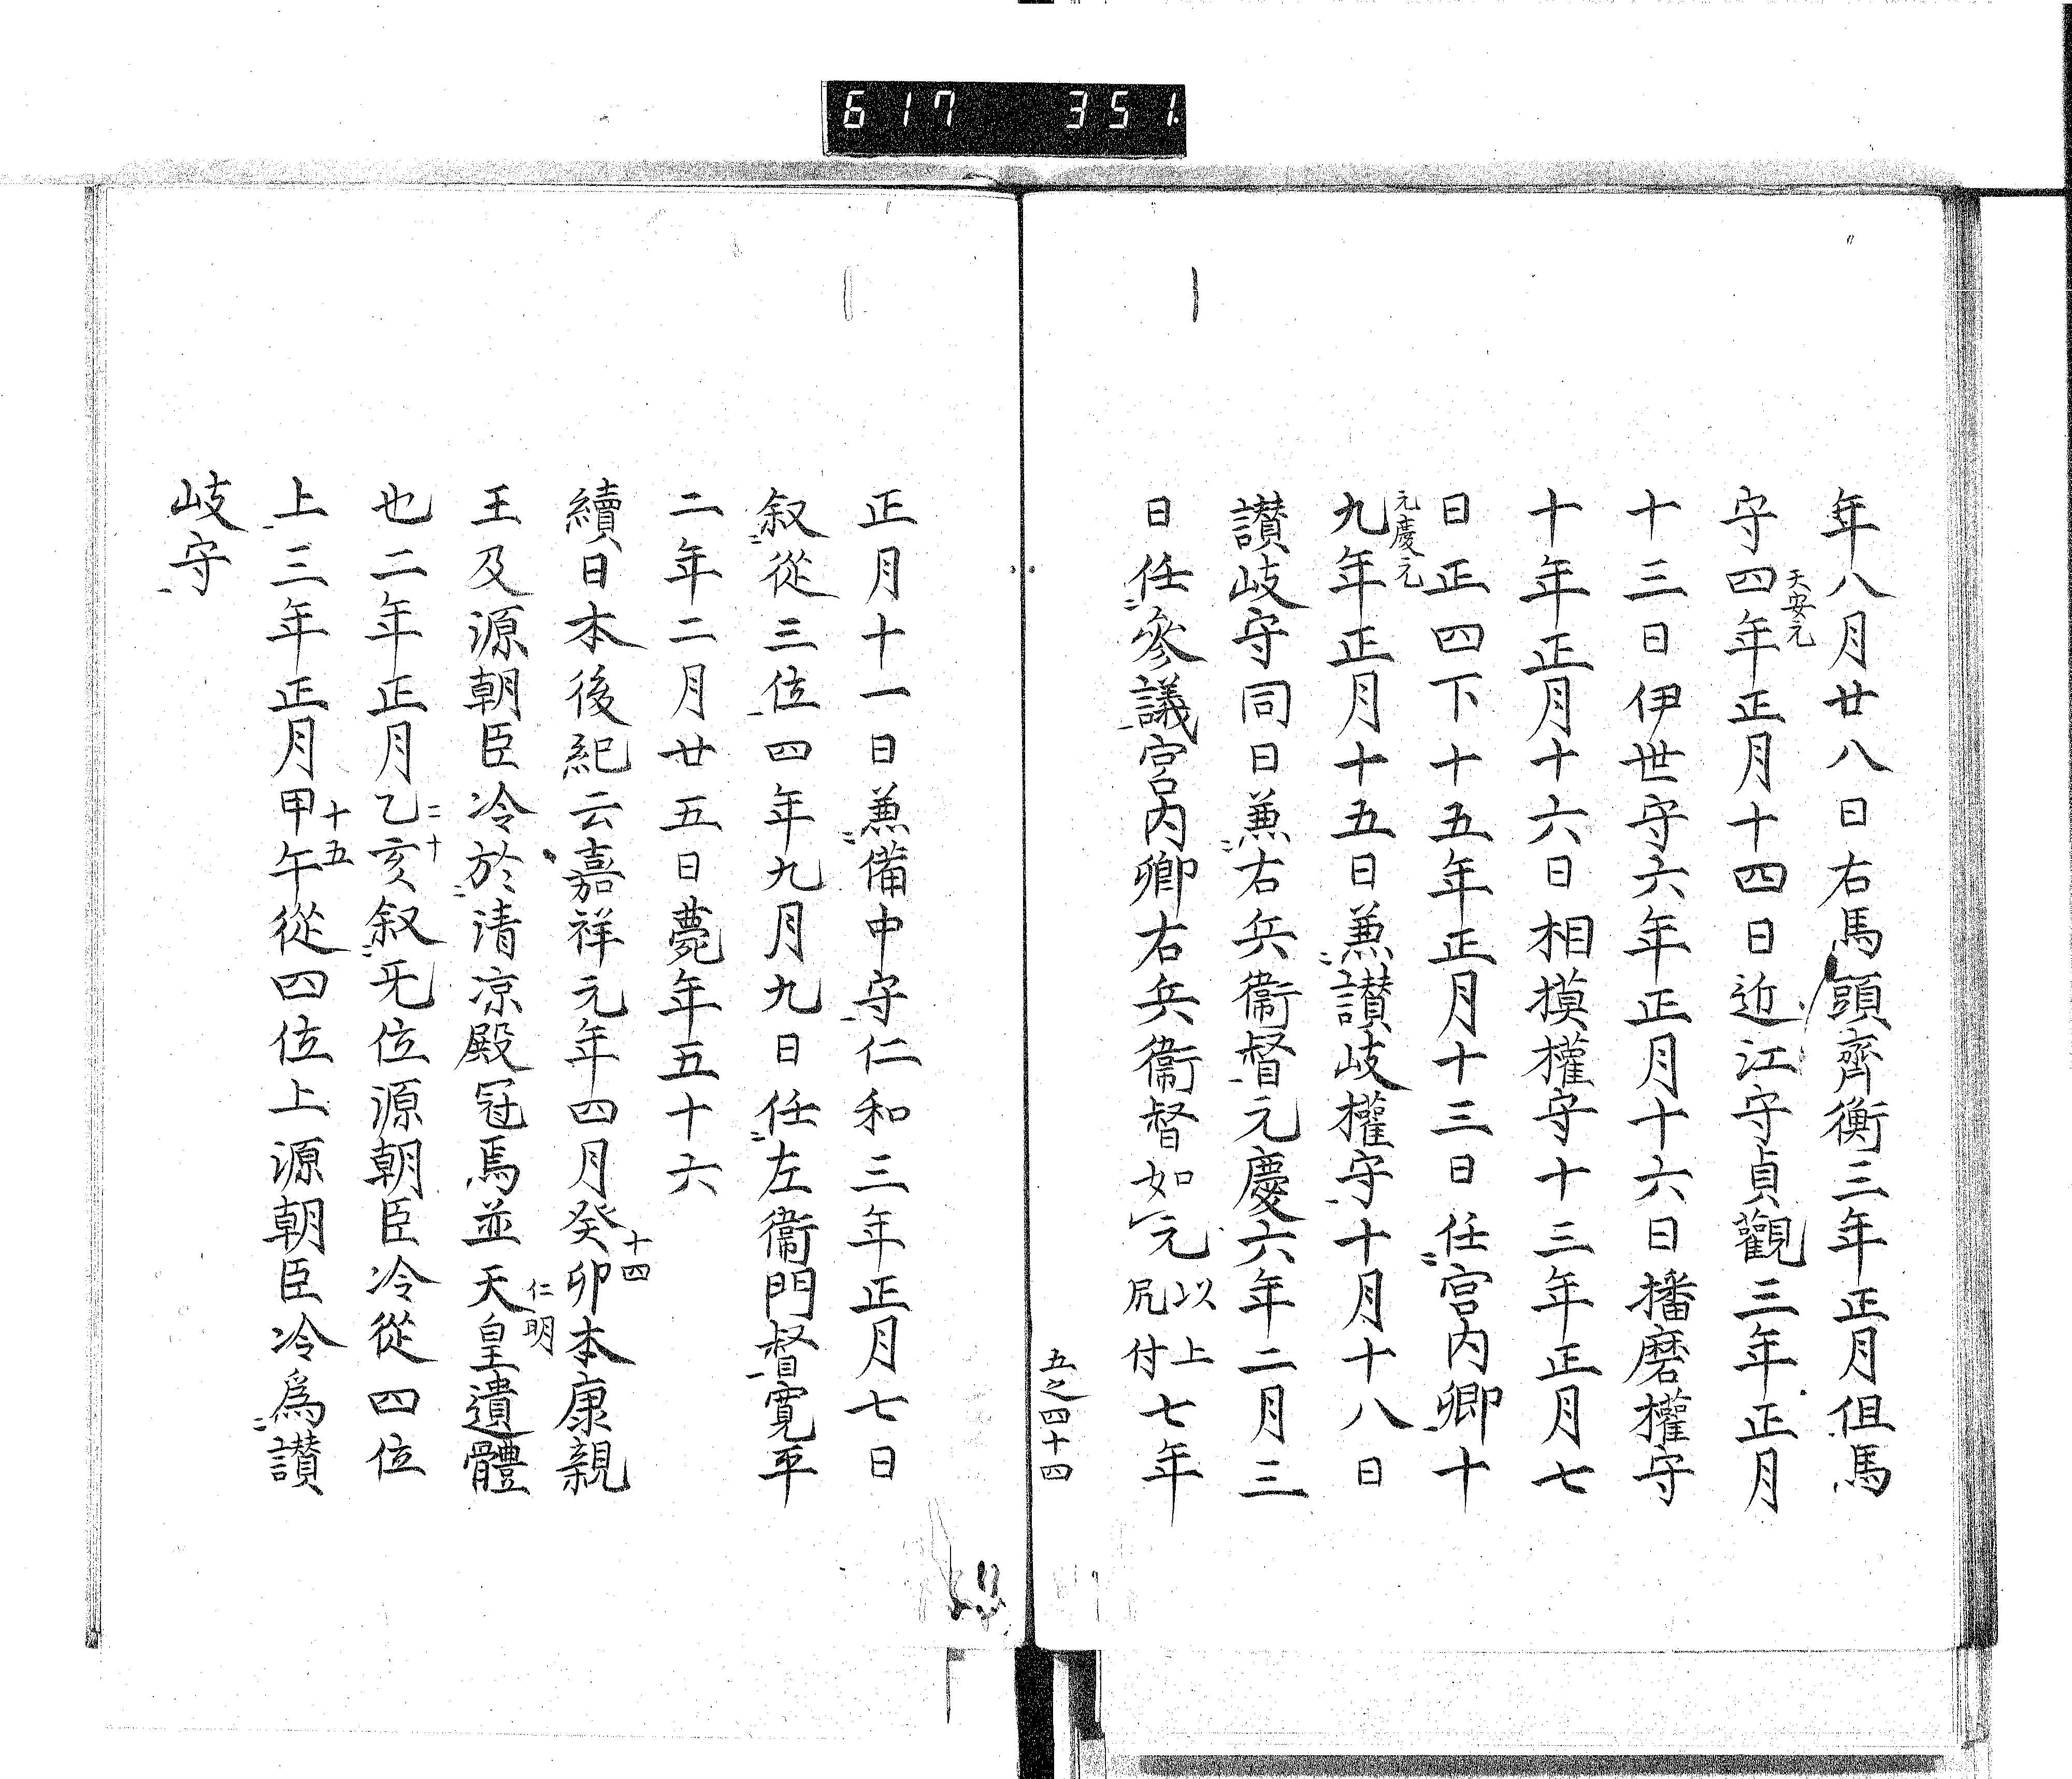 617 351
年八月廿八日右馬頭齊衡三年正月伹馬
天安元
守四年正月十四日近江守貞觀三年正月
十三日伊世守六年正月十六日播磨權守
十年正月十六日相摸權守十三年正月七
日正四下十五年正月十三日任宮内卿十
元慶元
九年正月十五日兼讃岐權守十月十八日
讃岐守同日兼右兵衞督元慶六年二月三
日任參議宮内卿右兵衞督如元以上尻付七年
五之四十四
正月十一日兼備中守仁和三年正月七日
叙從三位四年九月九日任左衞門督寛平
二年二月廿五日薨年五十六
續日本後紀云嘉祥元年四月癸卯本康親
十四
王及源朝臣冷於清凉殿冠焉並天皇遺體
仁明
也二年正月乙亥叙无位源朝臣冷從四位
二十
上三年正月甲午從四位上源朝臣冷爲讃
十五
岐守